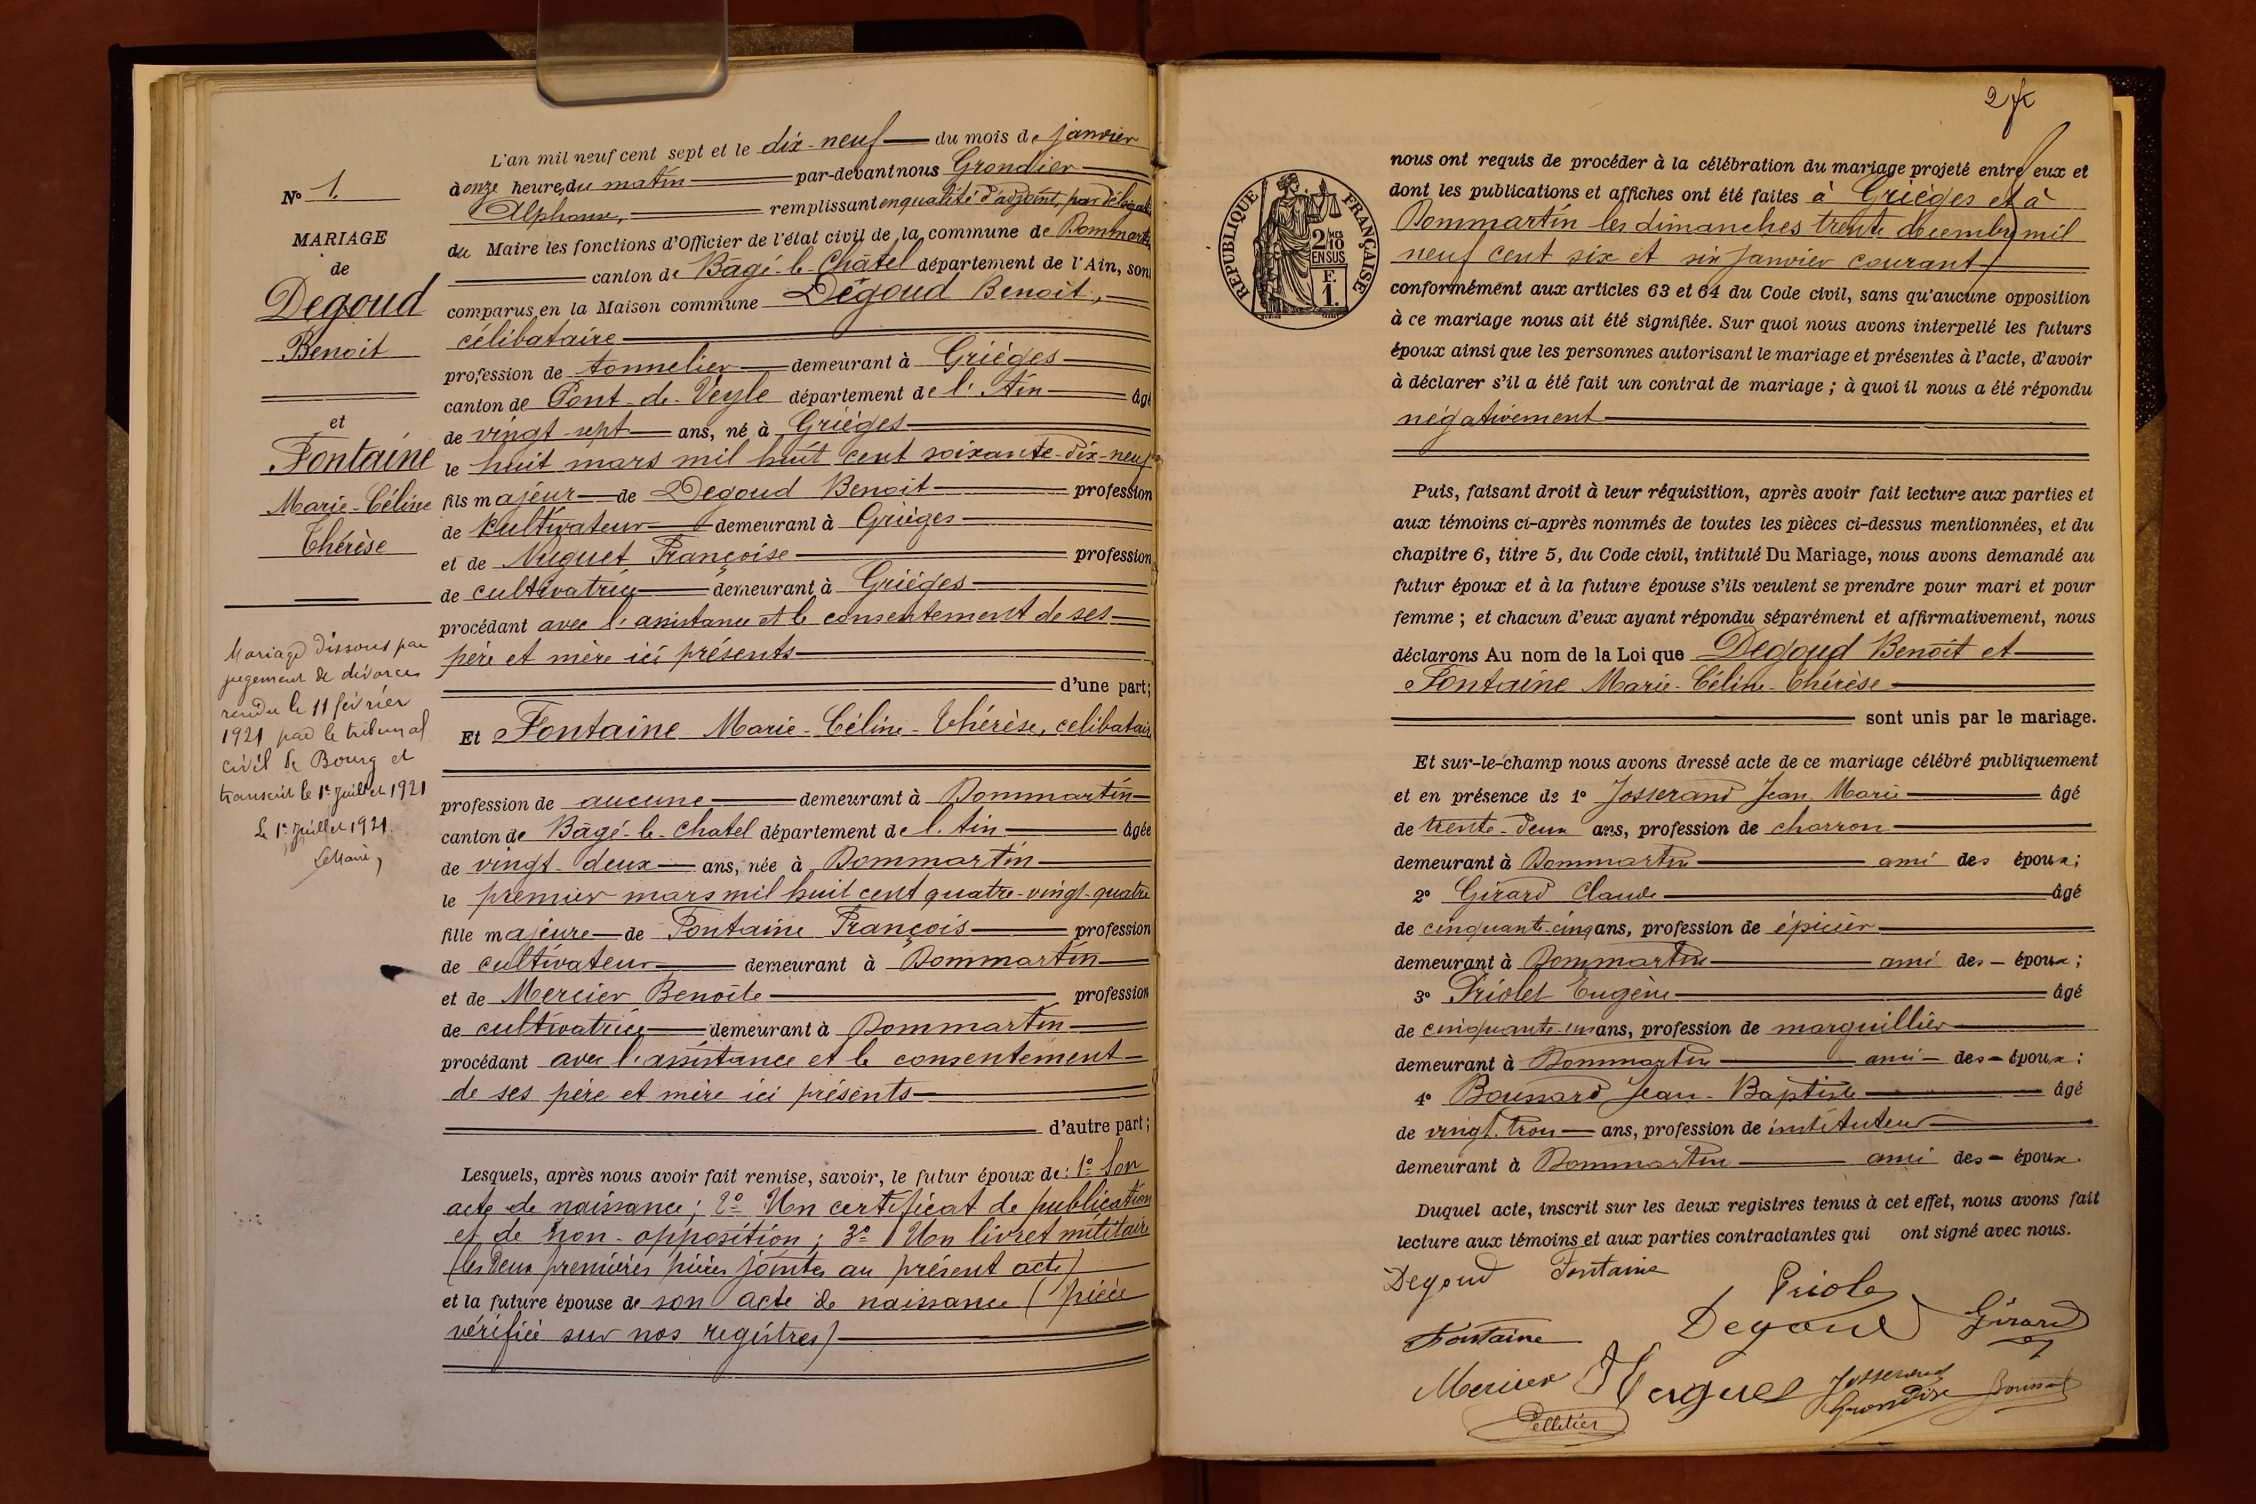 L'an mil neuf cent sept et le dix-neuf du mois de janvier
à onze heures du matin par-devant nous Grondier
Alphonse, remplissant en qualité d'adjoint, par délégat
du Maire les fonctions d'Officier de l'état civil de la commune de Dommartin
canton de Bâgé-le-Châtel département de l'Ain, sont
comparus en la Maison commune Degoud Benoit,
célibataire
profession de tonnelier demeurant à Grièges
canton de Pont-de-Veyle département de l'Ain âgé
de vingt-sept ans, né à Grièges
le huit mars mil huit cent soixante-dix-neuf
fils majeur de Degoud Benoit profession
de cultivateur demeurant à Grièges
et de Nuguet Françoise profession
de cultivatrice demeurant à Grièges
procédant avec l'assistance et le consentement de ses
père et mère ici présents
d'une part;
Et Fontaine Marie-Céline-Thérèse, célibataire
profession de aucune demeurant à Dommartin
canton de Bâgé-le-Chatel département de l'Ain âgée
de vingt-deux ans, née à Dommartin
le premier mars mil huit cent quatre-vingt-quatre
fille majeure de Fontaine François profession
de cultivateur demeurant à Dommartin
et de Mercier Benoîte profession
de cultivatrice demeurant à Dommartin
procédant avec l'assistance et le consentement
de ses père et mère ici présents
d'autre part;
Lesquels, après nous avoir fait remise, savoir, le futur époux de: 1° Son
acte de naissance; 2° Un certificat de publication
et de non-opposition; 3° Un livret militaire
(les deux premières pièces jointes au présent acte)
et la future épouse de son acte de naissance (pièce
vérifiée sur nos registres)
No 1.
MARIAGE
de
Degoud
Benoit
et
Fontaine
Marie-Céline
Thérèse
Mariage dissous par
jugement de divorce
rendu le 11 février
1921 par le tribunal
civil de Bourg et
transcrit le 1er Juillet 1921
Le 1er Juillet 1921.
Le Maire,
2
RÉPUBLIQUE FRANÇAISE
2 MES
10
EN SUS
F.
1.
nous ont requis de procéder à la célébration du mariage projeté entre eux et
dont les publications et affiches ont été faites à Grièges et à
Dommartin les dimanches trente décembre mil
neuf cent six et six janvier courant
conformément aux articles 63 et 64 du Code civil, sans qu'aucune opposition
à ce mariage nous ait été signifiée. Sur quoi nous avons interpellé les futurs
époux ainsi que les personnes autorisant le mariage et présentes à l'acte, d'avoir
à déclarer s'il a été fait un contrat de mariage; à quoi il nous a été répondu
négativement
Puis, faisant droit à leur réquisition, après avoir fait lecture aux parties et
aux témoins ci-après nommés de toutes les pièces ci-dessus mentionnées, et du
chapitre 6, titre 5, du Code civil, intitulé Du Mariage, nous avons demandé au
futur époux et à la future épouse s'ils veulent se prendre pour mari et pour
femme; et chacun d'eux ayant répondu séparément et affirmativement, nous
déclarons Au nom de la Loi que Degoud Benoît et
Fontaine Marie-Céline-Thérèse
sont unis par le mariage.
Et sur-le-champ nous avons dressé acte de ce mariage célébré publiquement
et en présence de 1° Josserand Jean Marie âgé
de trente-deux ans, profession de charron
demeurant à Dommartin ami des époux;
2° Girard Claude âgé
de cinquante-cinq ans, profession de épicier
demeurant à Dommartin ami des époux;
3° Priolet Eugène âgé
de cinquante-un ans, profession de marguillier
demeurant à Dommartin ami des époux;
4° Boussard Jean-Baptiste âgé
de vingt-trois ans, profession de instituteur
demeurant à Dommartin ami des époux.
Duquel acte, inscrit sur les deux registres tenus à cet effet, nous avons fait
lecture aux témoins et aux parties contractantes qui ont signé avec nous.
Degoud Fontaine
Priolet
Fontaine Degoud Girard
Mercier Nuguet Josserand
Grondier Boussard
Pelletier